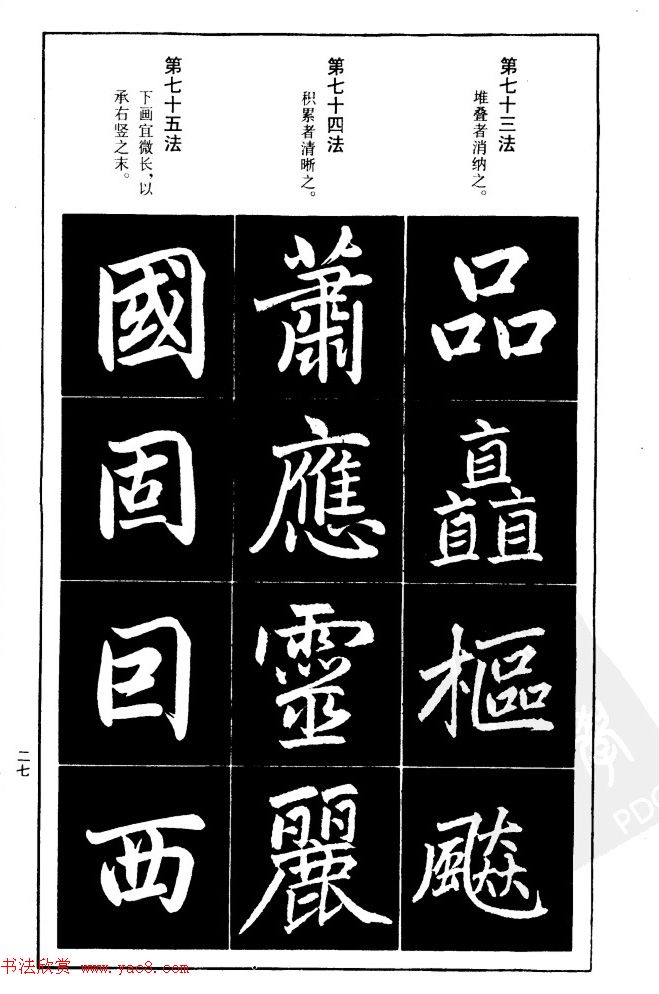 第七十三法
堆叠者消纳之。
品
矗
樞
飈
第七十四法
积累者清晰之。
蕭
應
靈
麗
第七十五法
下画宜微长，以
承右竖之末。
國
固
回
西
二七
书法欣赏 www.yac8.com
PDG